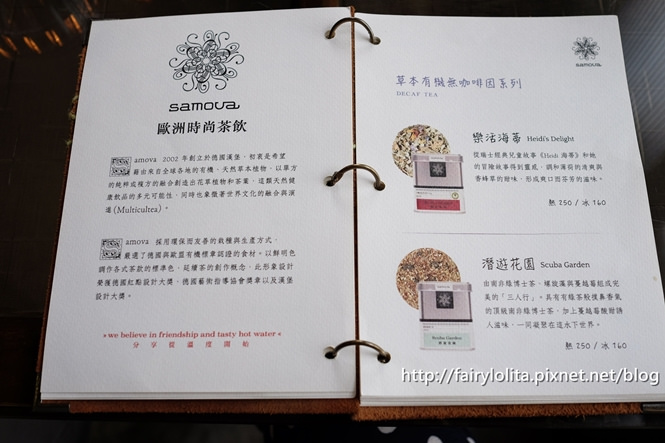 samova
歐洲時尚茶飲
samova 2002 年創立於德國漢堡,初衷是希望
藉由來自全球各地的有機、天然草本植物,以單方
的純粹或複方的融合創造出花草植物和茶葉,這類天然健
康飲品的多元可能性,同時也象徵著世界文化的融合與演
進(Multicultea)。
samova 採用環保而友善的栽種與生產方式,
嚴選了德國與歐盟有機標章認證的食材。以鮮明色
調作各式茶款的標準色,延續茶的創作概念,此形象設計
榮獲德國紅點設計大獎、德國藝術指導協會獎章以及漢堡
設計大獎。
»we believe in friendship and tasty hot water«
分享從溫度開始
samova
草本有機無咖啡因系列
DECAF TEA
樂活海蒂 Heidi's Delight
從瑞士經典兒童故事《Heidi 海蒂》和她
的冒險故事得到靈感,調和薄荷的清爽與
香蜂草的甜味,形成爽口而芬芳的滋味。
熱 250 / 冰 160
潛遊花園 Scuba Garden
由南非綠博士茶、螺旋藻與蔓越莓組成完
美的「三人行」。具有有綠茶般撲鼻香氣
的頂級南非綠博士茶,加上蔓越莓酸甜誘
人滋味,一同凝聚在這水下世界。
熱 250 / 冰 160
Scuba Garden
潛遊花園
http://fairylolita.pixnet.net/blog